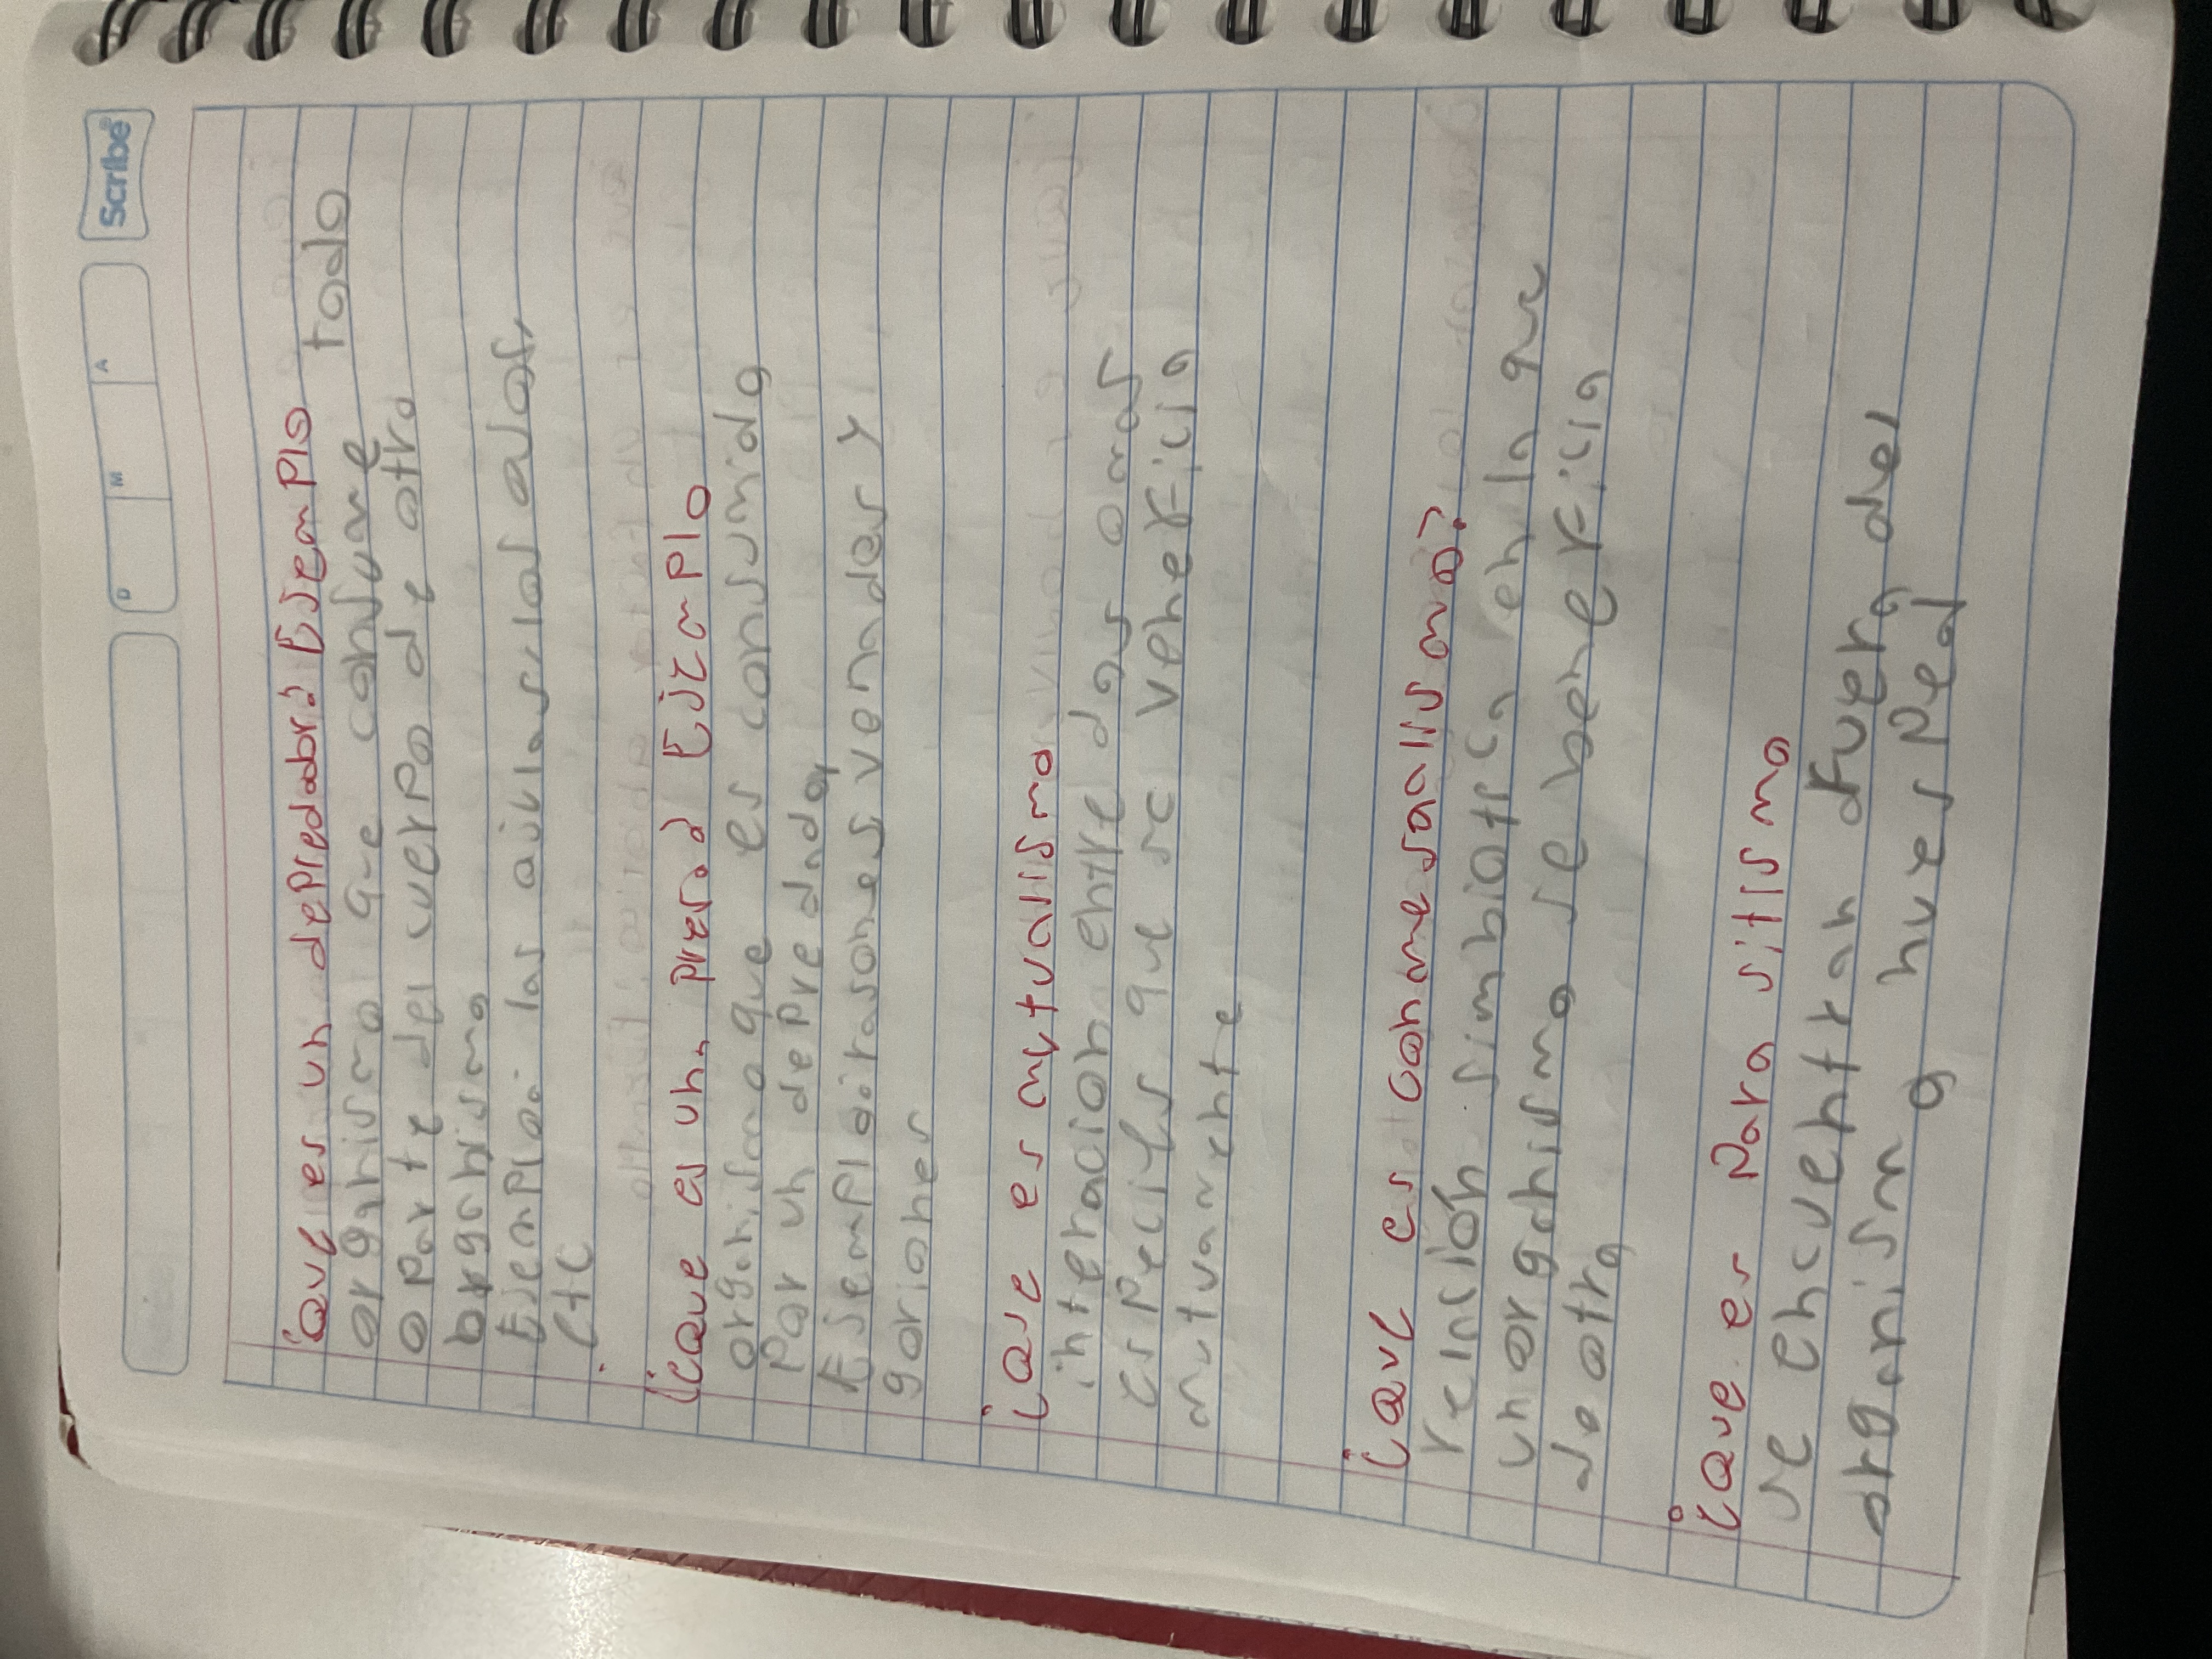 Scribe
D M A
¿Que es un depredador? Ejemplo
organismo que consume todo
o parte del cuerpo de otro
organismo
Ejemplo: las aguilas, los
etc
¿Que es una presa? Ejemplo
organismo que es consumido
Por un depredador
Ejemplo: ratones venados y
¿Que es mutualismo
interacion entre dos o mas
especies que se veneficia
mutuamente
¿Que es comensalismo?
relación simbiotica en la que
un organismo se beneficia
de otro
¿Que es Parasitismo
se encuentran fuera del
organism o huesped